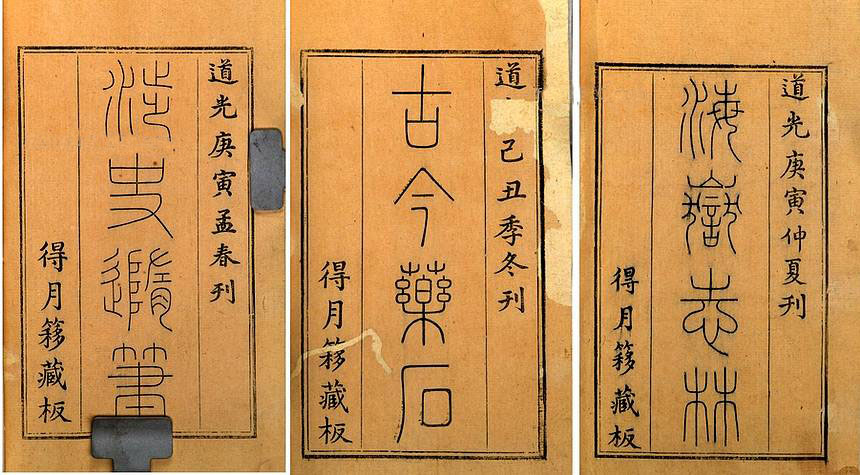 道光庚寅孟春刊
涉史隨筆
得月簃藏板
道己丑季冬刊
古今藥石
得月簃藏板
道光庚寅仲夏刊
海嶽志林
得月簃藏板